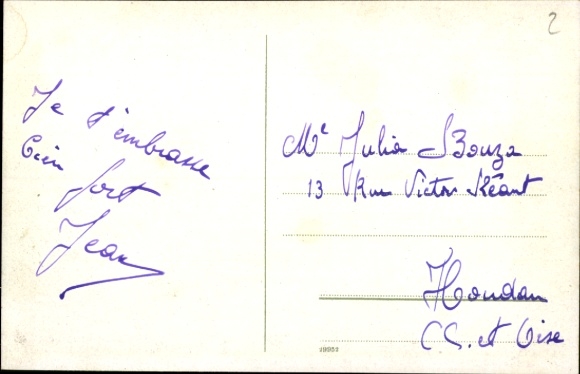 2
Je t'embrasse
bien fort
Jean
Me Julia Bouza
13 Rue Victor
Houdan
S. et Oise